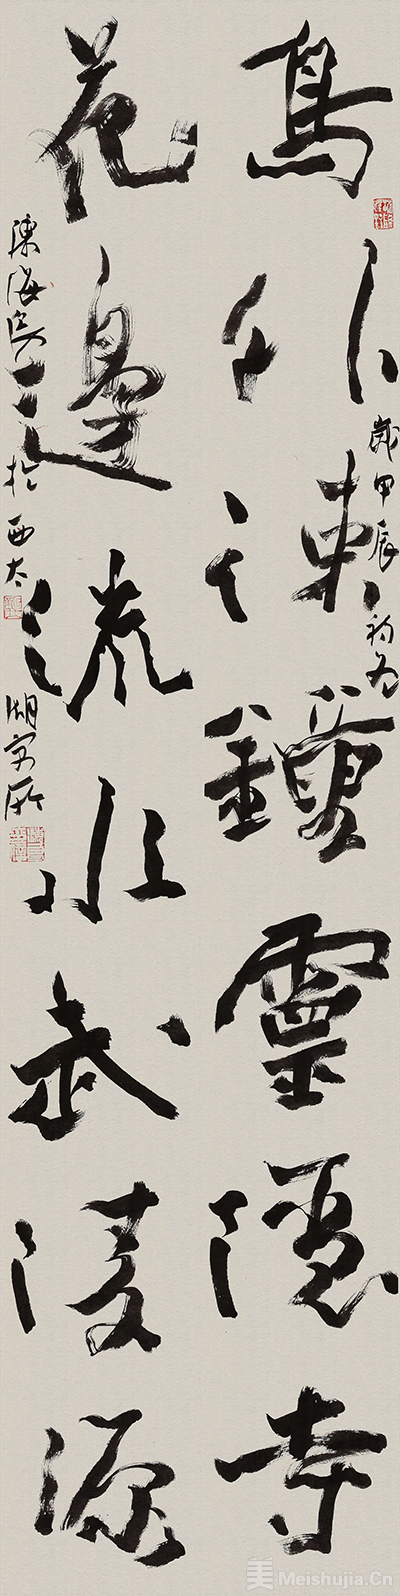 鳥外疎鐘靈隱寺
花邊流水武陵源
歲甲辰初冬
陳海良於西太湖寓所
美 Meishujia.Cn